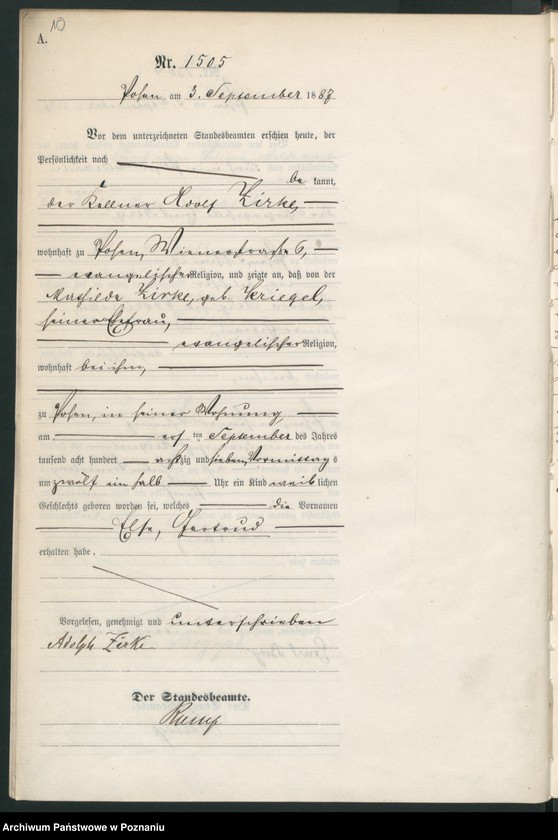 10
A.
Nr. 1505
Posen am 3. September 1887
Vor dem unterzeichneten Standesbeamten erschien heute, der
Persönlichkeit nach
be kannt,
der Kellner Adolf Zirke,
wohnhaft zu Posen, Wienerstraße 6,
evangelischer Religion, und zeigte an, daß von der
Mathilde Zirke, geb. Kriegel,
seiner Ehefrau,
evangelischer Religion,
wohnhaft bei ihm,
zu Posen, in seiner Wohnung
am ersten September des Jahres
tausend acht hundert achtzig und sieben, Vormittags
um zwölf ein halb Uhr ein Kind weiblichen
Geschlechts geboren worden sei, welches die Vornamen
Else, Gertrud
erhalten habe.
Vorgelesen, genehmigt und unterschrieben
Adolph Zirke
Der Standesbeamte.
Archiwum Państwowe w Poznaniu